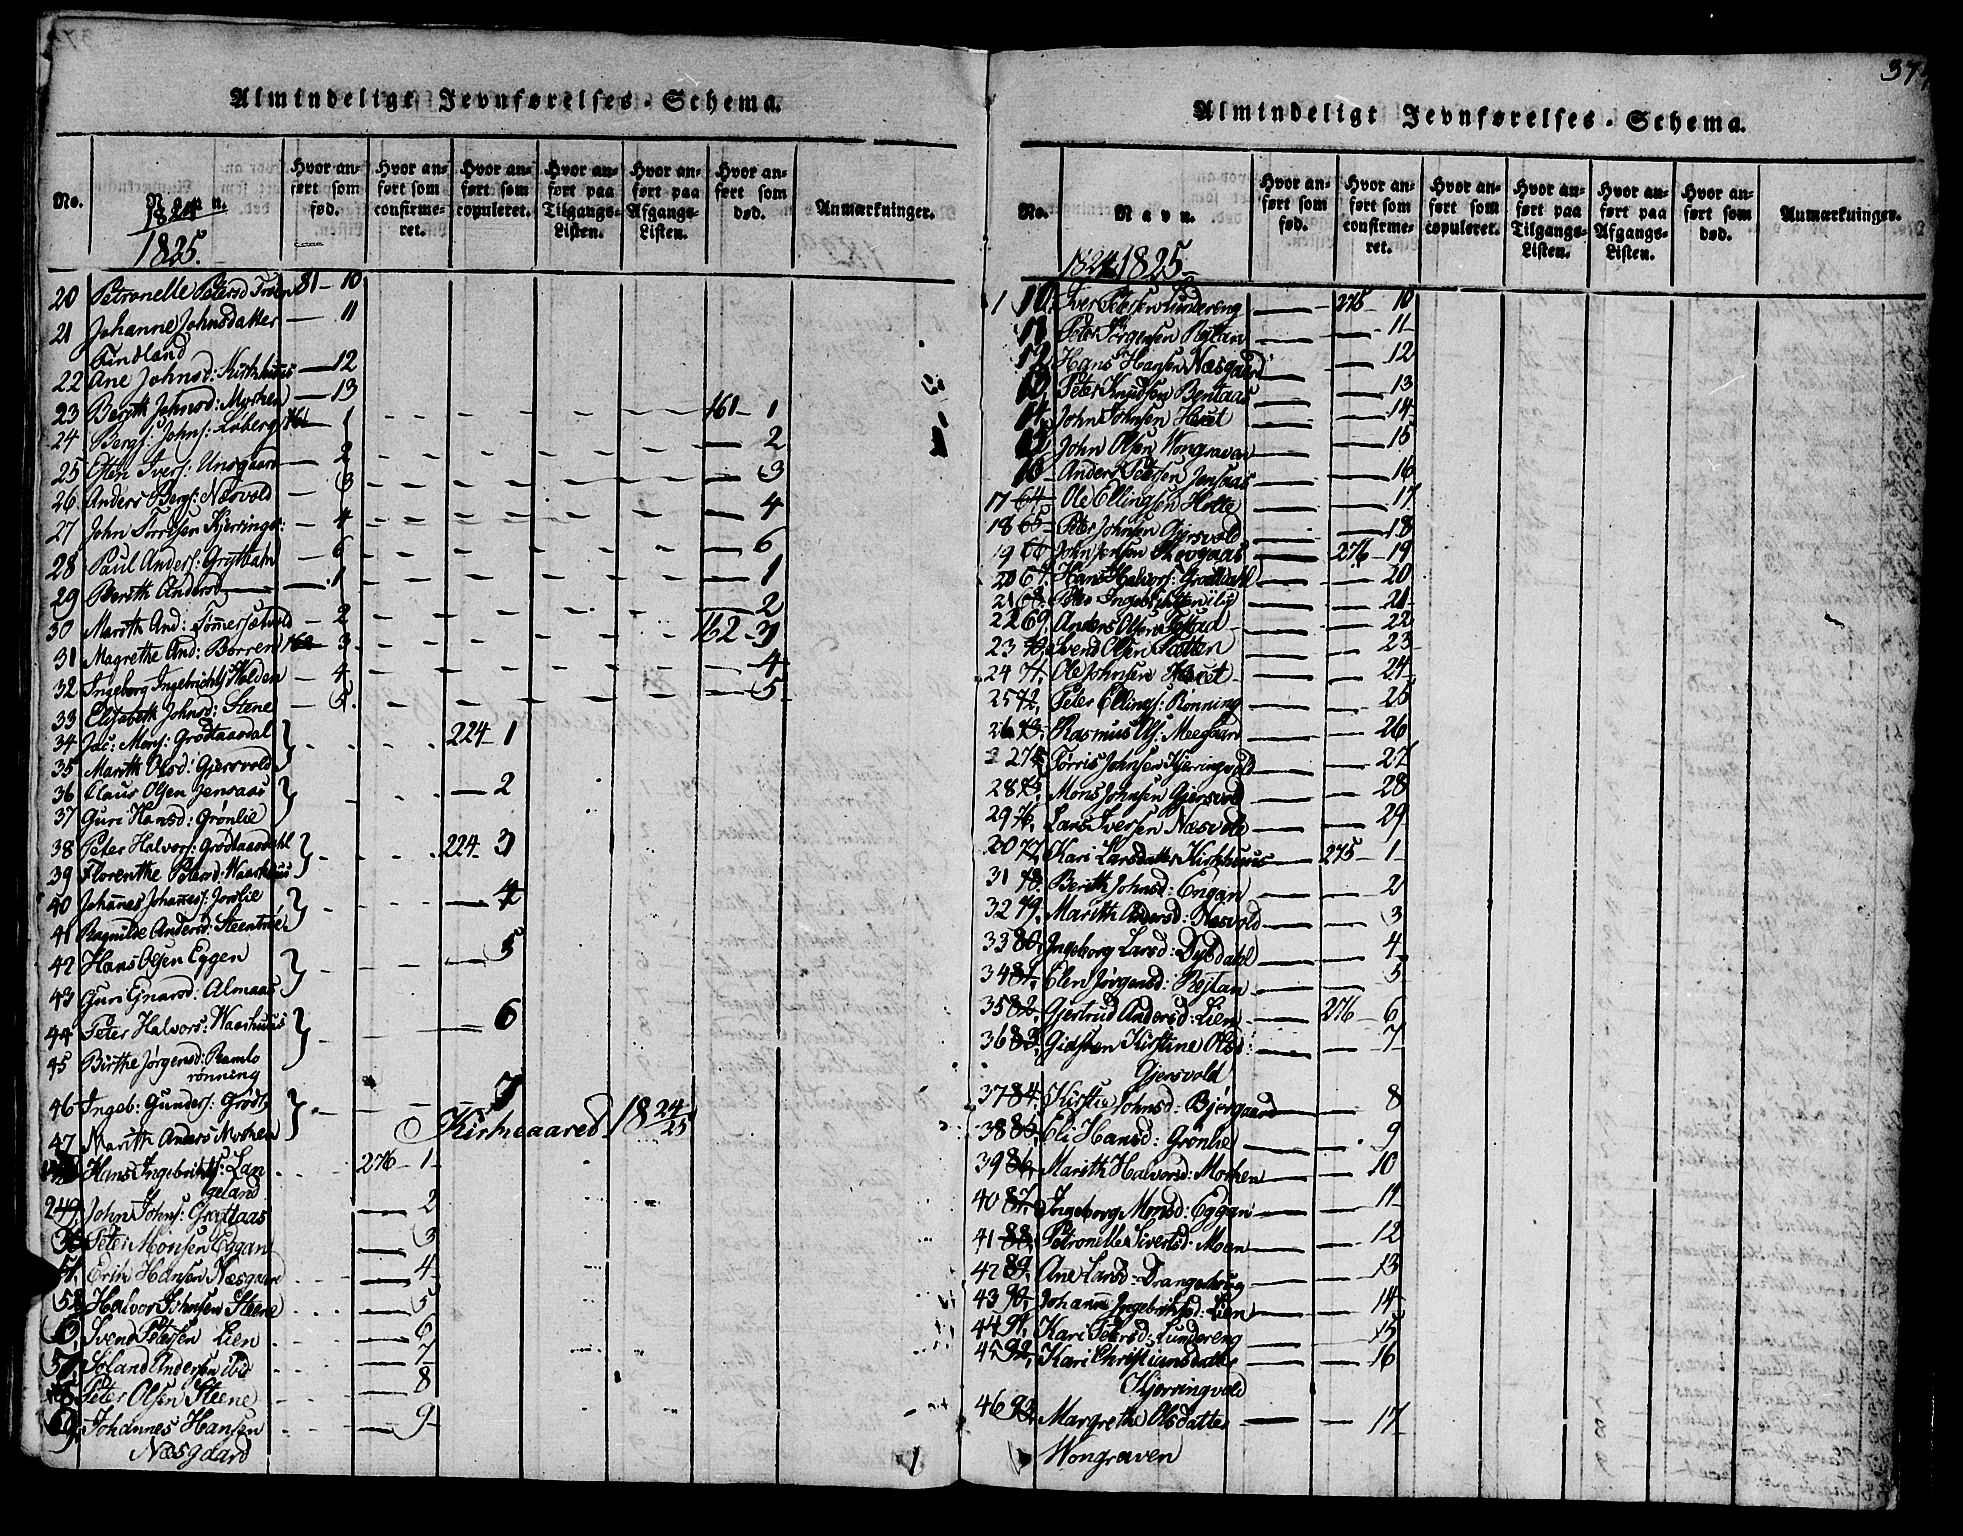 Almindeligt Jevnførelses-Schema.
No.
Navn.
1824
1825.
Hvor anført som fød.
Hvor anført som confirmeret.
Hvor anført som copuleret.
Hvor anført paa Tilgangs-Listen.
Hvor anført paa Afgangs-Listen.
Hvor anført som død.
Anmærkninger.
20 Petronelle Petersd Troen 81 - 10
21 Johanne Johnsdatter — 11
Findland
22 Ane Johnsd: Kirkhuus — 12
23 Berith Johnsd: Mochen — 13
24 Bergs: Johns: Loberg 161 1 161 - 1
25 Often Ivers: Unsgaard — 2 — 2
26 Anders Bergs: Næsvold — 3 — 3
27 John Torrisen Kjerringv: — 4 — 4
28 Paul Anders: Grytbakn — 6 — 6
29 Berith Andersd — 1 — 1
30 Marith And: Tømmersætvold — 2 — 2
31 Magrethe And: Borren 162 3 162 - 3
32 Ingeborg Ingebrichts: Volden — 4 — 4
33 Elisabeth Johnsd: Stene — 5 — 5
34 Jac: Mons: Grødtaasdal 224 - 1
35 Marith Olsd: Gjersvold
36 Claus Olsen Jensaas — 2
37 Guri Hansd: Grønlie
38 Peter Halvors: Grødtaasdahl 224 - 3
39 Florenthe Larsd: Waarhuus
40 Johannes Johannes: Jorslie — 4
41 Ragnilde Andersd: Steentrøe
42 Hans Olsen Eggen — 5
43 Guri Ejnarsd: Almaas
44 Peter Halvors: Waarhuus — 6
45 Birthe Jørgensd: Ramlo
rønning
46 Ingeb: Gunders: Grødt — 7
47 Marith Anders Mochen
Kirkeaaret 18 24/25
Hans Ingebrichts: Lan 276 - 1
geland
249. John Johns: Grøttaas — 2
Peter Monsen Eggan — 3
Erik Hansen Næsgaard — 4
Halvor Johnsen Steene — 5
Svend Petersen Lien — 6
Andersen ibid — 7
Peter Olsen Steene — 8
Johannes Hansen — 9
Næsgaard
374
Almindeligt Jevnførelses-Schema.
No.
Navn.
1824 1825
Hvor anført som fød.
Hvor anført som confirmeret.
Hvor anført som copuleret.
Hvor anført paa Tilgangs-Listen.
Hvor anført paa Afgangs-Listen.
Hvor anført som død.
Anmærkninger.
10 Iver Petersen Lundereng — 275 10
11 Peter Jørgensen Rejtan — 11
12 Hans Hansen Næsgaard — 12
13 Peter Knudsen Bentaas — 13
14 John Johnsen Heret — 14
15 John Olsen Wongraven — 15
16 Anders Petersen Jensaas — 16
17 64 Ole Ellingsen Holte — 17
18 65 Peter Johnsen Gjersvold — 18
19 66 John Jensen Skovgaas — 276 - 19
20 67. Hans Halvors: Grødtdahl — 20
21 68. Peter Ingebrichtsen Lij — 21
22 69 Anders Olsen — 22
23 70. Svend Olsen Sætten — 23
24 71. Ole Johnsen Heret — 24
25 72. Peter Ellings: Rønning — 25
26 73. Rasmus Ols: Meegaard — 26
27 74 Tørris Johnsen Kjerringvold — 27
28 75 Mons Johnsen Gjersvold — 28
29 76. Lars Iversen Næsvold — 29
30 77. Kari Larsdatter Kirkhuus — 275 - 1
31 78. Berith Johnsd: Engan — 2
32 79. Marith Andersd: Næsvold — 3
33 80. Ingeborg Larsd: Dysdahl — 4
34 81. Elen Jørgensd: Rejtan — 5
35 82. Gjertrud Andersd: Lien — 276 - 6
36 83 Gidsken Kirstine Olsd: — 7
Gjersvold
37 84. Kirstie Johnsd: Bjørgaard — 8
38 85. Eli Hansd: Grønlie — 9
39 86. Marith Halvorsd: Mochen — 10
40 87. Ingeborg Monsd: Eggan — 11
41 88. Petronelle Sivertsd: Moen — 12
42 89. Ane Larsd: Drangebrug — 13
43 90. Johanne Ingebrichtsd: Lien — 14
44 91. Kari Petersd: Lundereng — 15
45 92. Kari Christiansdatter — 16
Kjerringvold
46 93. Margrethe Olsdatter — 17
Wongraven